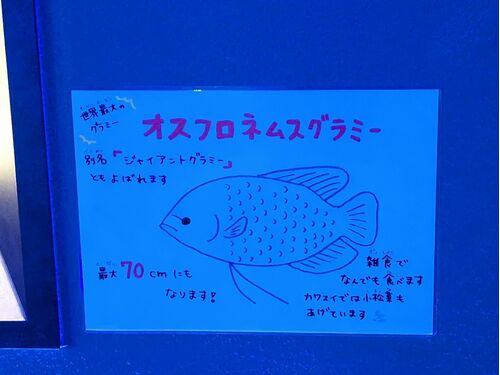 世界最大の
グラミー
オスフロネムスグラミー
別名「ジャイアントグラミー」
ともよばれます
最大70cmにも
なります!
雑食で
なんでも食べます
カワスイでは小松菜も
あげています